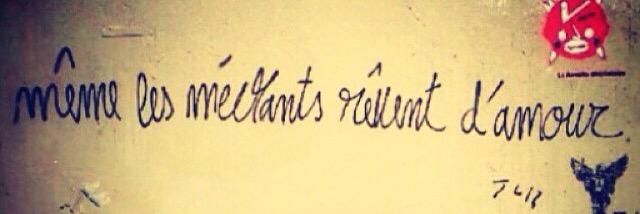 même les méchants rêvent d'amour